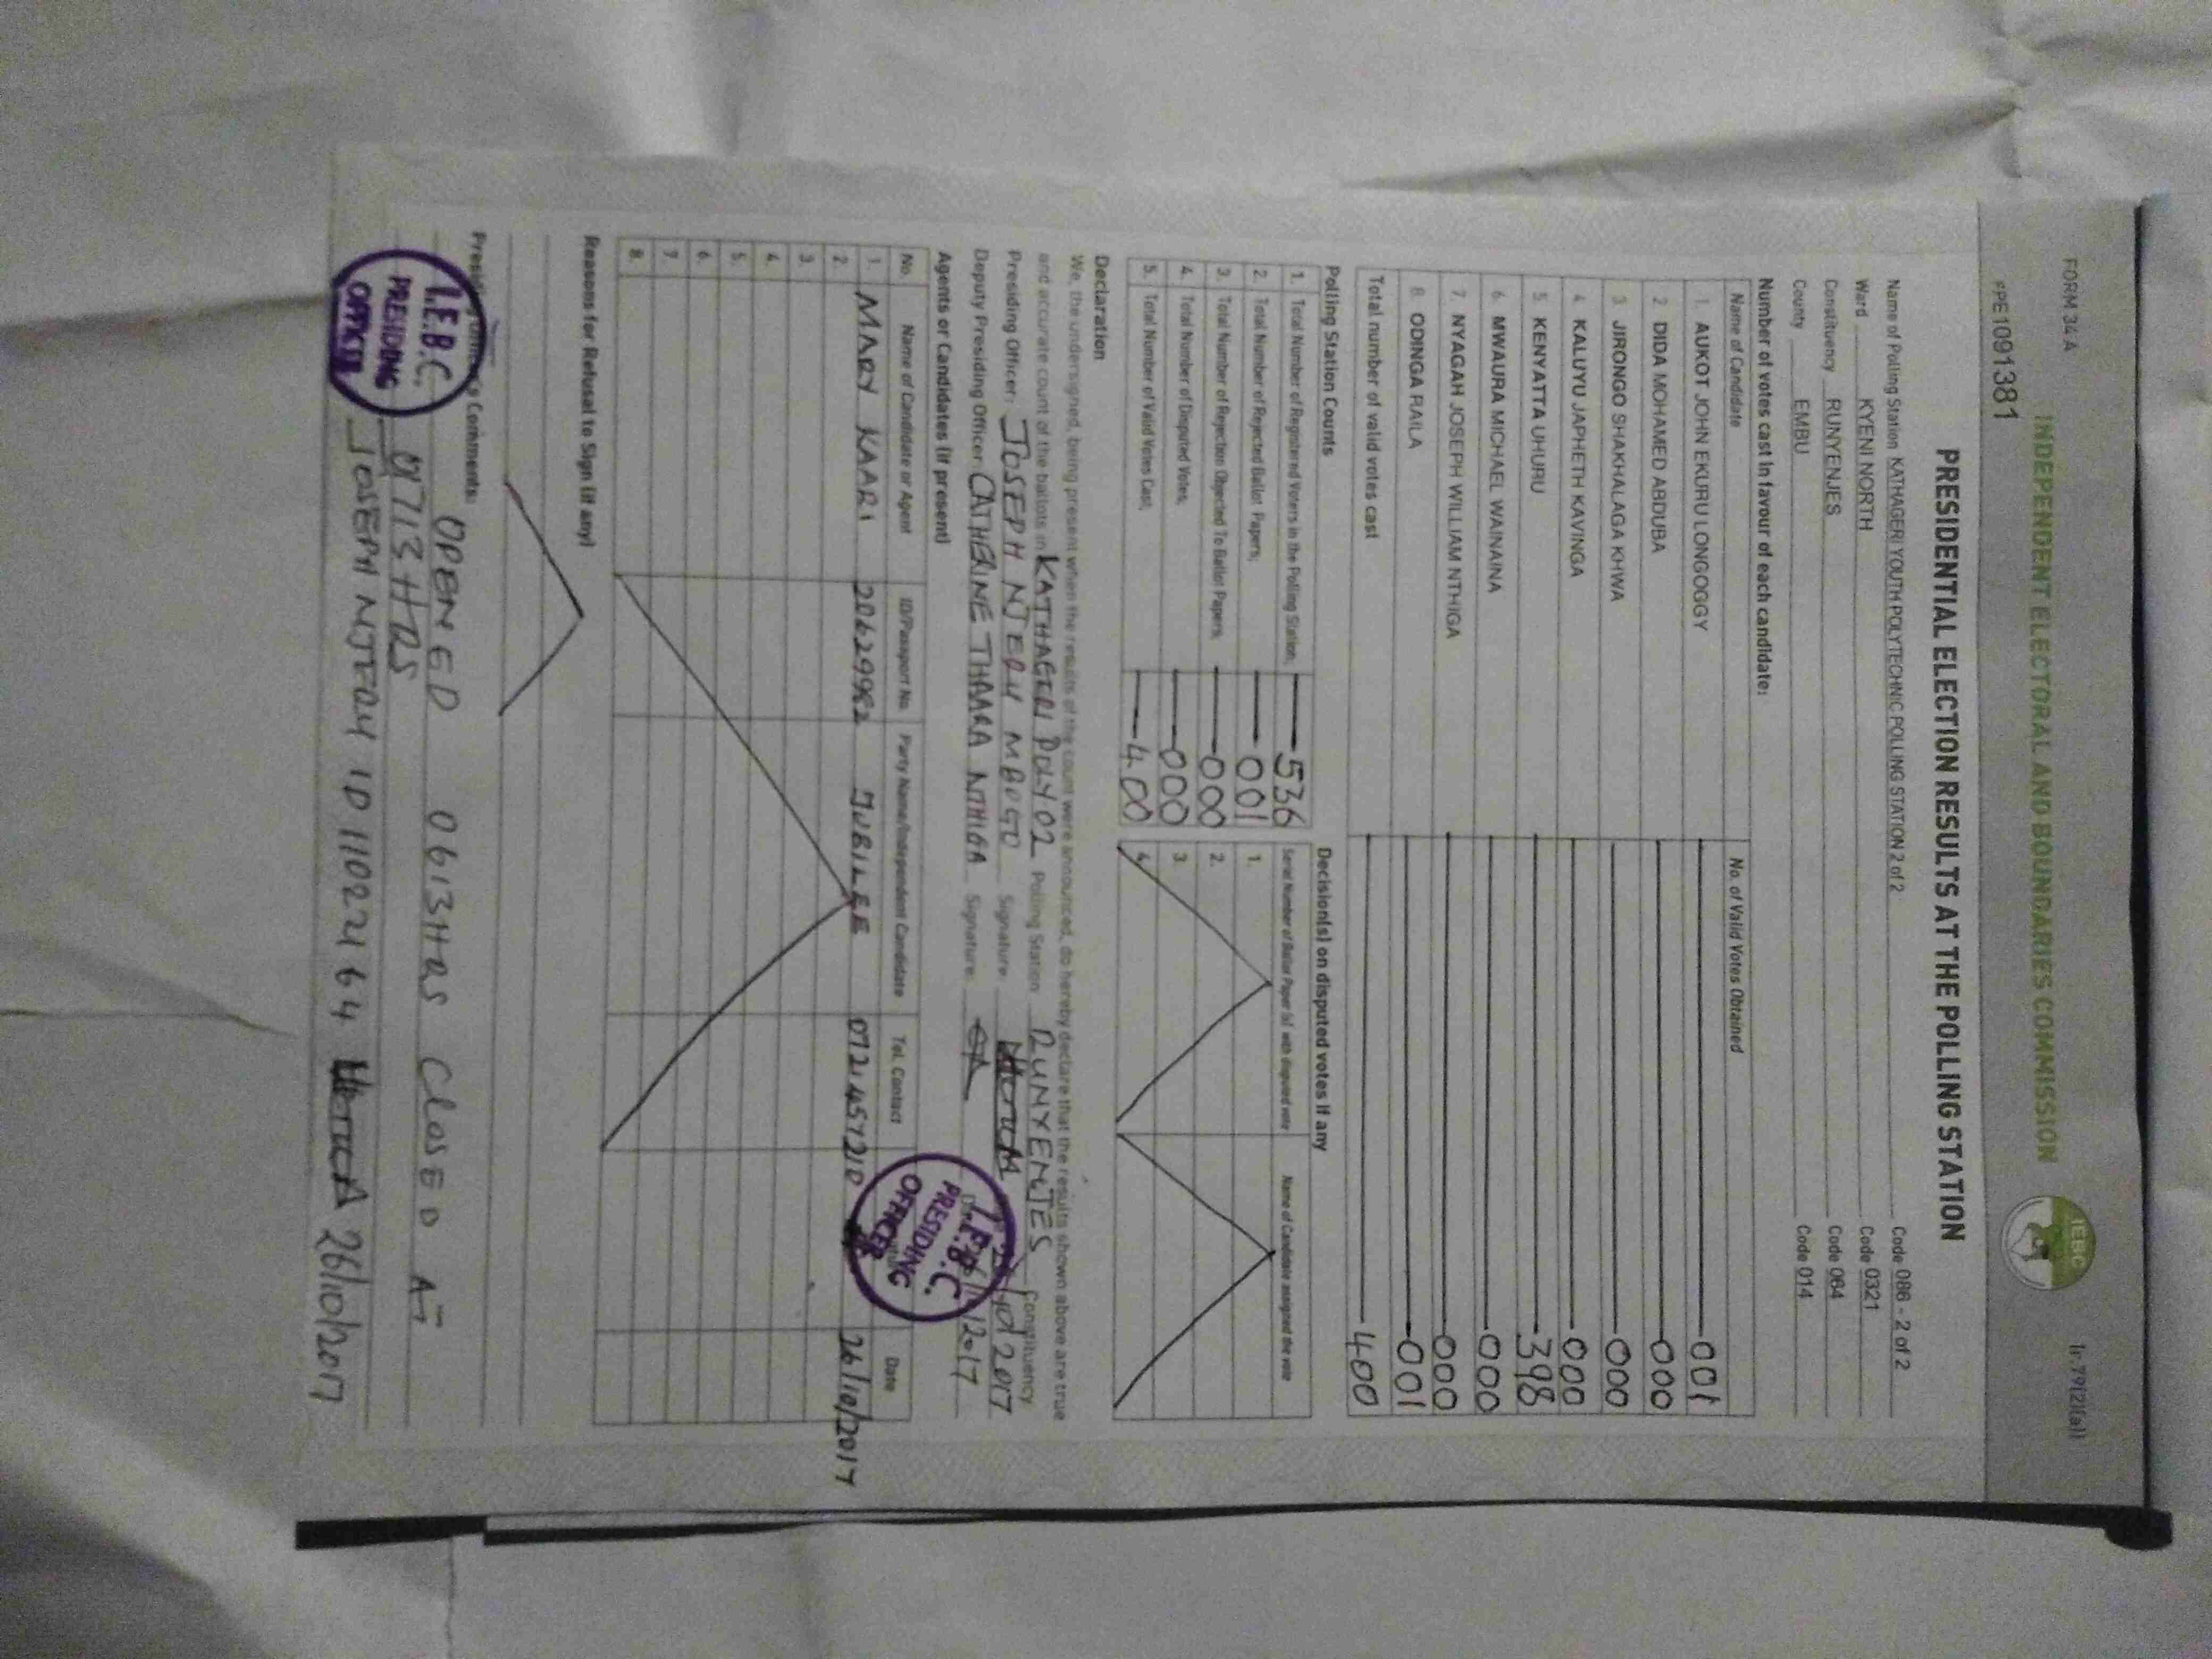 FORM 34 A
Ir.79(2)(a)]
INDEPENDENT ELECTORAL AND BOUNDARIES COMMISSION
IEBC
PE1091381
PRESIDENTIAL ELECTION RESULTS AT THE POLLING STATION
Name of Polling Station KATHAGERI YOUTH POLYTECHNIC POLLING STATION 2 of 2 Code 086 - 2 of 2
Ward KYENI NORTH Code 0321
Constituency RUNYENJES Code 064
County EMBU Code 014
Number of votes cast in favour of each candidate:
Name of Candidate No. of Valid Votes Obtained
1. AUKOT JOHN EKURU LONGOGGY 001
2 DIDA MOHAMED ABDUBA 000
3 JIRONGO SHAKHALAGA KHWA 000
4 KALUYU JAPHETH KAVINGA 000
5 KENYATTA UHURU 398
6 MWAURA MICHAEL WAINAINA 000
7. NYAGAH JOSEPH WILLIAM NTHIGA 000
8 ODINGA RAILA 001
Total number of valid votes cast 400
Polling Station Counts
1. Total Number of Registered Voters in the Polling Station; 536
2. Total Number of Rejected Ballot Papers; 001
3. Total Number of Rejection Objected To Ballot Papers; 000
4. Total Number of Disputed Votes; 000
5. Total Number of Valid Votes Cast; 400
Decision(s) on disputed votes if any
Serial Number of Ballot Paper (s) with disputed vote Name of Candidate assigned the vote
1.
2.
3.
4.
Declaration
We, the undersigned, being present when the results of the count were announced, do hereby declare that the results shown above are true
and accurate count of the ballots in KATHAGERI POLY 02 Polling Station RUNYENJES Constituency
Presiding Officer: JOSEPH NJERU MBOGO Signature 2017
Deputy Presiding Officer CATHERINE THAARA NTHIGA Signature 2017
I.E.B.C.
PRESIDING
OFFICER
Agents or Candidates (if present)
No. Name of Candidate or Agent ID/Passport No. Party Name/Independent Candidate Tel. Contact Date
1. MARY KAARI 20629982 JUBILEE 0721457210 26/10/2017
2.
3.
4.
5.
6.
7.
8.
Reasons for Refusal to Sign (if any)
Comments: OPENED 0613HRS CLOSED AT
1713HRS
JOSEPH NJERU ID 11022164 26/10/2017
I.E.B.C.
PRESIDING
OFFICER